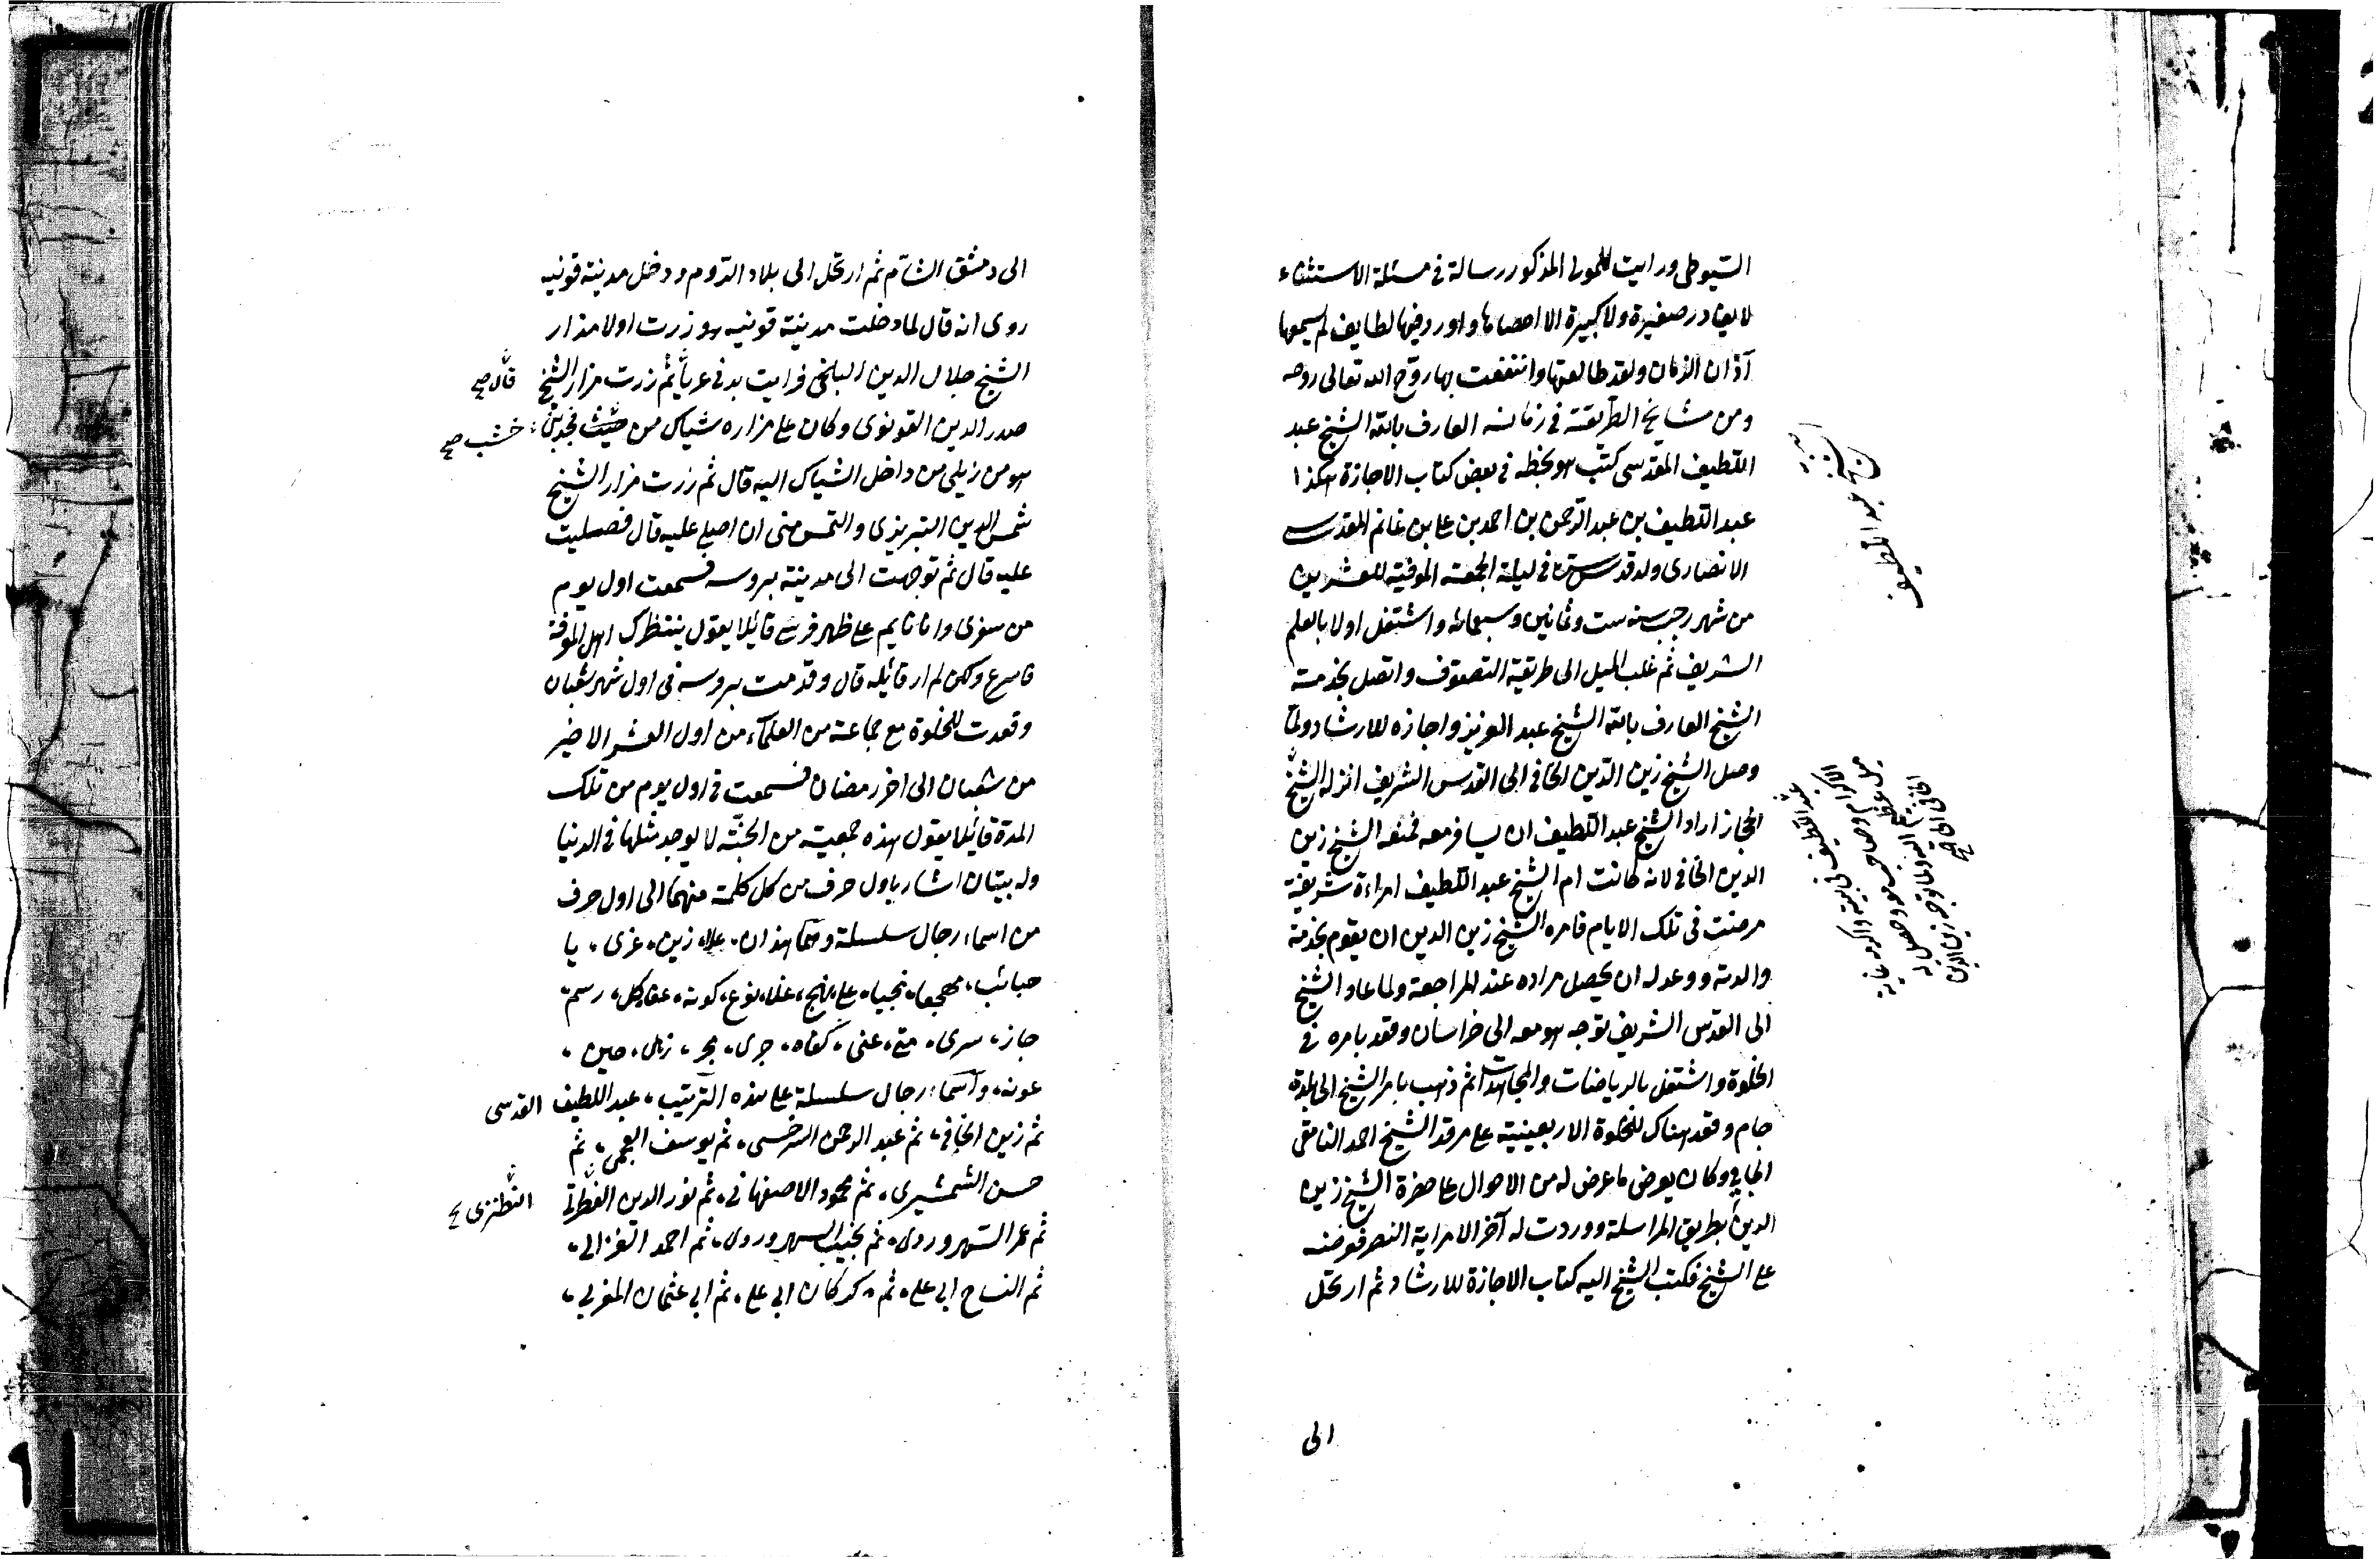 السيوطى ورايت للمولى المذكور رسالة فى مسئلة الاستثناء
لا يغادر صغيرة ولا كبيرة الا احصاها واورد فيها لطايف لم يسمعها
آذان الزمان ولقد طالعتها وانتفعت بها روّح الله تعالى روحه
ومن مشايخ الطريقة فى زمانه العارف بالله الشيخ عبد
اللطيف المقدسى كتب هو بخطه فى بعض كتاب الاجازة هكذا
عبد اللطيف بن عبد الرحمن بن احمد بن على بن غانم المقدسى
الانصارى ولد قدس سره فى ليلة الجمعة الموفية للعشرين
من شهر رجب سنه ست وثمانين وسبعمائه واشتغل اولا بالعلم
الشريف ثم غلب الميل الى طريقة التصوف واتصل بخدمة
الشيخ العارف بالله الشيخ عبد العزيز واجازه للارشاد ولمّا
وصل الشيخ زين الدين الخافى الى القدس الشريف انزله الشيخ
الحجاز اراد الشيخ عبد اللطيف ان يسافر معه فمنعه الشيخ زين
الدين الخافى لانه كانت ام الشيخ عبد اللطيف امراءة شريفة
مرضت فى تلك الايام فامره الشيخ زين الدين ان يقوم بخدمة
والدته ووعد له ان يحصل مراده عند المراجعة ولما عاد الشيخ
الى القدس الشريف توجه هو معه الى خراسان وقعد بامره فى
الخلوة واشتغل بالرياضات والمجاهدات ثم ذهب بامر الشيخ الى بلدة
جام وقعد هناك للخلوة الاربعينية على مرقد الشيخ احمد النامقى
الجامى وكان يعرض ما عرض له من الاحوال على حضرة الشيخ زين
الدين بطريق المراسلة ووردت له آخر الامر اية النصر فعرضه
على الشيخ فكتب الشيخ اليه كتاب الاجازة للارشاد ثم ارتحل
الشيخ عبد اللطيف
عبد اللطيف فى بيته واكرمه غاية
الاكرام وصاحب معه وحصل له
ميل عظيم اليه ولما توجه زين الدين
الخافى الى صح
الى
الى دمشق الشام ثم ارتحل الى بلاد الروم ودخل مدينة قونيه
روى انه قال لما دخلت مدينة قونيه هو زرت اولا مزار
الشيخ جلال الدين البلخى فرايت بدنى عرياً ثم زرت مزار الشيخ
قال صح
صدر الدين القونوى وكان على مزاره شباك من فجذبنى
خشب صح
هو من زيلى من داخل الشباك اليه قال ثم زرت مزار الشيخ
شمس الدين التبريزى والتمس منى ان اصلى عليه قال فصليت
عليه قال ثم توجهت الى مدينة بروسه فسمعت اول يوم
من سفرى وانا نايم على ظهر فرسى قائلا يقول ينتظرك اهل المعرفة
فاسرع ولكن لم ار قائله قال وقدمت بروسه فى اول شهر شعبان
وقعدت للخلوة مع جماعة من العلماء من اول العشر الاخير
من شعبان الى اخر رمضان فسمعت فى اول يوم من تلك
المدة قائلا يقول هذه جمعية من الجنّة لا يوجد مثلها فى الدنيا
وله بيتان اشار باول حرف من كل كلمة منهما الى اول حرف
من اسماء رجال سلسلة وهما هذان علا زين عزى يا
حبائب نجيبا على نهج علا نوع كونه رسم
جاز سرى عنى كفاه جرى حين
عونه واسماء رجال سلسلة على هذه الترتيب عبد اللطيف القدسى
ثم زين الخافى ثم عبد الرحمن السرخسى ثم يوسف العجمى ثم
حسن الشمشيرى ثم محمود الاصفهانى ثم نور الدين
النطنزى صح
ثم عمر السهروردى ثم نجيب السهروردى ثم احمد الغزالى
ثم النساج ابى على ثم كركان ابى على ثم ابى عثمان المغربى